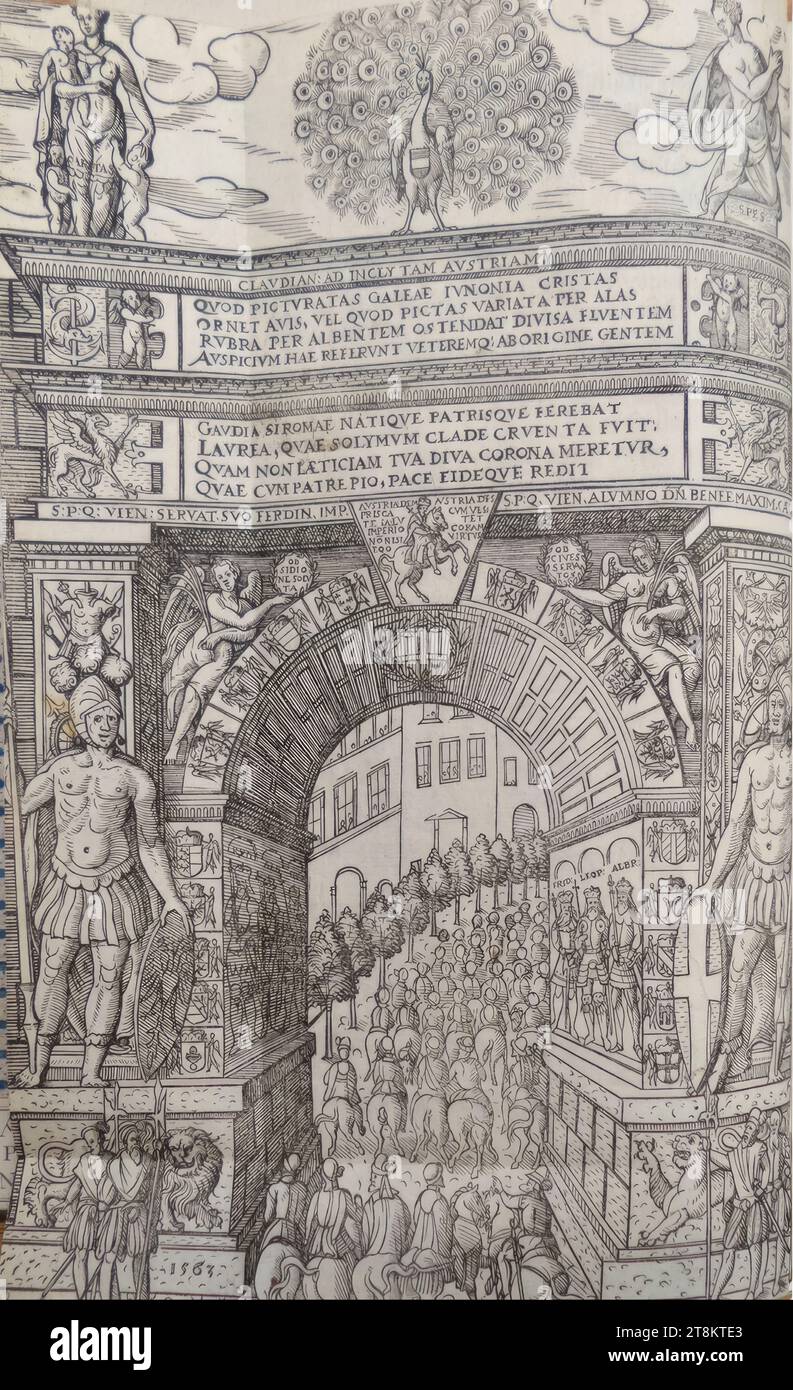 CARITAS
SPES
CLAUDIAN: AD INCLYTAM AVSTRIAM
QVOD PICTVRATAS GALEAE IVNONIA CRISTAS
ORNET AVIS, VEL QVOD PICTAS VARIATA PER ALAS
RVBRA PER ALBENTEM OSTENDAT DIVISA FLVENTEM
AVSPICIVM HAE REFERVNT VETEREMQ: ABORIGINE GENTEM
GAVDIA SI ROMAE NATIQVE PATRISQVE FEREBAT
LAVREA, QVAE SOLYMVM CLADE CRVENTA FVIT:
QVAM NON LÆTICIAM TVA DIVA CORONA MERETVR,
QVAE CVM PATRE PIO, PACE FIDEQVE REDIT
S:P:Q: VIEN: SERVAT. SVO FERDIN. IMP.
S:P:Q. VIEN. ALVMNO DN̄. BENEF. MAXIM. CA
OB
SIDIO
NE SOL
TA
OB
CIVES
SERVA
TOS
FRID: LEOP: ALBR:
1563
alamy
alamy
Image ID: 2T8KTE3
www.alamy.com